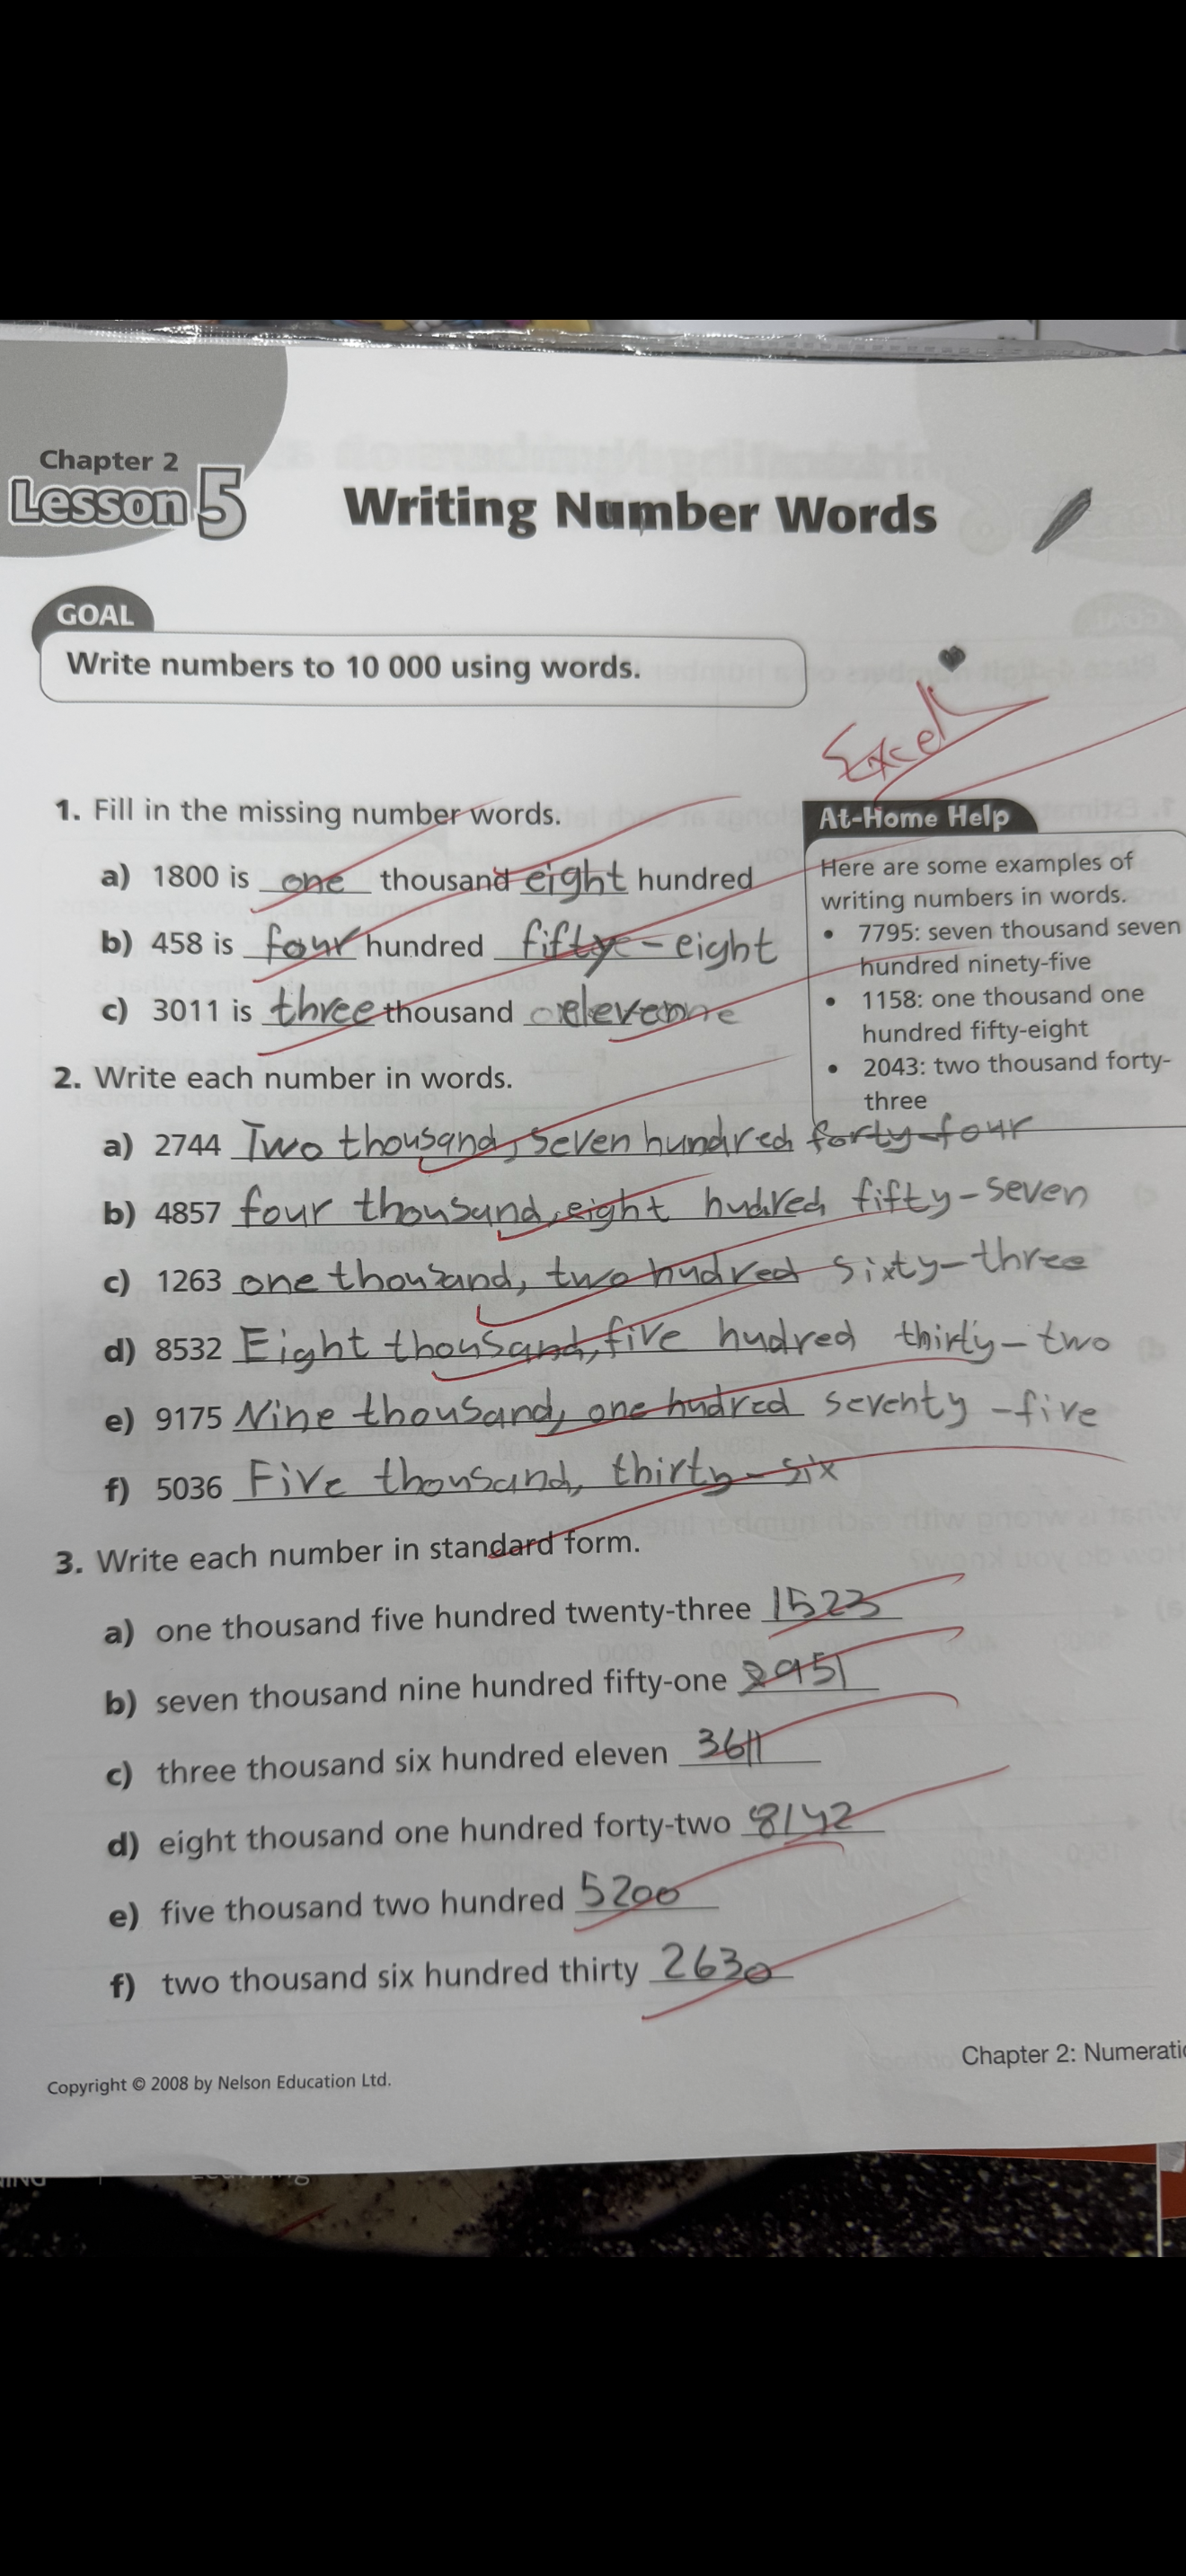 Chapter 2
Lesson 5
Writing Number Words
GOAL
Write numbers to 10 000 using words.
Excel
1. Fill in the missing number words.
a) 1800 is one thousand eight hundred
b) 458 is four hundred fifty-eight
c) 3011 is three thousand eleven
At-Home Help
Here are some examples of
writing numbers in words.
• 7795: seven thousand seven
hundred ninety-five
• 1158: one thousand one
hundred fifty-eight
• 2043: two thousand forty-
three
2. Write each number in words.
a) 2744 Two thousand, seven hundred forty-four
b) 4857 four thousand, eight hudred fifty-seven
c) 1263 one thousand, two hudred sixty-three
d) 8532 Eight thousand, five hudred thirty-two
e) 9175 Nine thousand, one hudred seventy-five
f) 5036 Five thousand, thirty-six
3. Write each number in standard form.
a) one thousand five hundred twenty-three 1523
b) seven thousand nine hundred fifty-one
c) three thousand six hundred eleven 3611
d) eight thousand one hundred forty-two 8142
e) five thousand two hundred 5200
f) two thousand six hundred thirty 2630
Chapter 2:
Copyright © 2008 by Nelson Education Ltd.